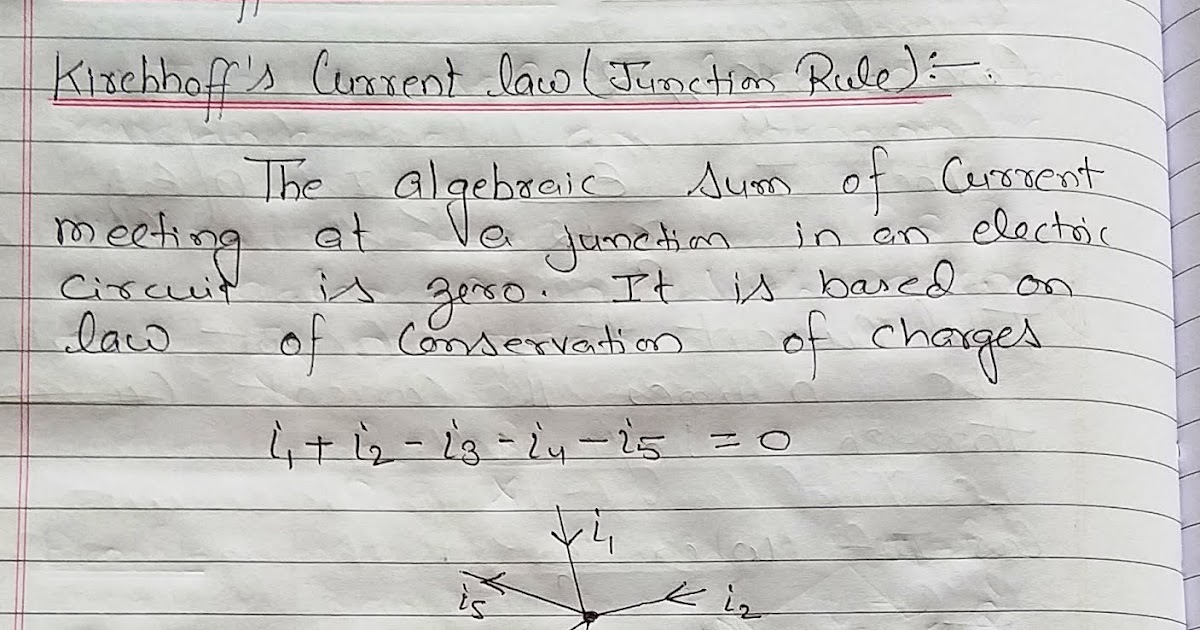 Kirchhoff's Current law (Junction Rule):-
The algebraic sum of Current
meeting at a junction in an electric
circuit is zero. It is based on
law of Conservation of charges
i₁ + i₂ - i₃ - i₄ - i₅ = 0
i₁
i₅ i₂